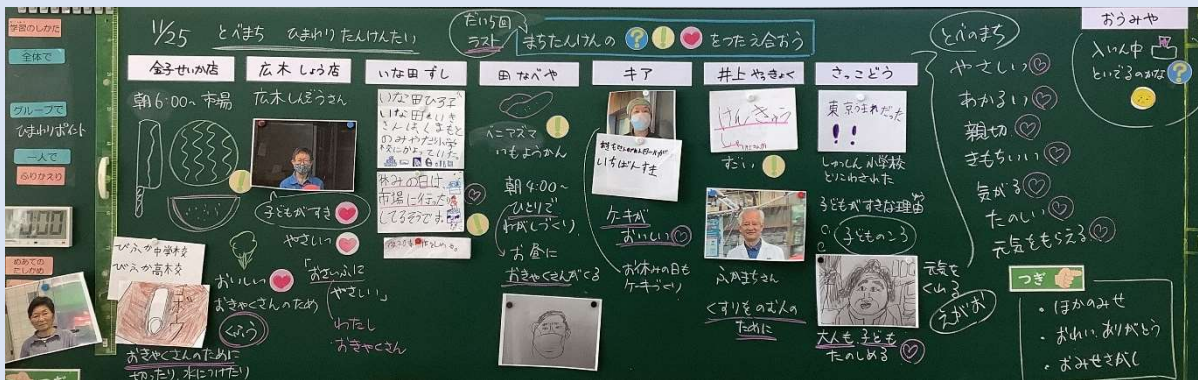 学習のしかた
全体で
グループで
ひまわりポイント
一人で
ふりかえり
めあての
たしかめ
11/25
とべまち ひまわり たんけんたい
だい5回
ラスト
まちたんけんの ? ! ♥ をつたえ合おう
金子せいか店
朝6:00〜市場
びふか中学校
びふか高校
おきゃくさんのために
切ったり、水につけたり
広木しょう店
広木しんぞうさん
子どもがすき
やさしい
おいしい
おきゃくさんのため
くふう
「おさいふに
やさしい」
わたし
おきゃくさん
いな田ずし
休みの日は、
市場に行ったり
してるそうです。
田なべや
ベニアズマ
いもようかん
朝4:00〜
ひとりで
わがしづくり
お昼に
おきゃくさんがくる
キア
いちばんすき
ケーキが
おいしい
お休みの日も
ケーキづくり
井上やっきょく
けんきゅう
すごい
くすりをのむ人の
ために
さっこどう
東京生まれだった
!!
とりこわされた
子どもがすきな理由
子どものころ
大人も、子どもも
たのしめる
元気を
くれる
えがお
とべのまち
やさしい
あかるい
親切
きもちいい
気がる
たのしい
元気をもらえる
おうみや
といでるのかな
つぎ
・ほかのみせ
・おれい、ありがとう
・おみせさがし